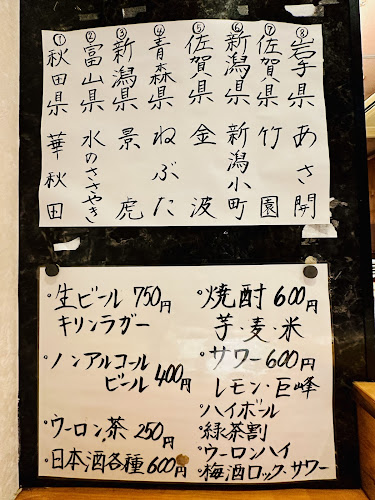 ① 秋田県 華秋田
② 富山県 水のささやき
③ 新潟県 景虎
④ 青森県 ねぶた
⑤ 佐賀県 金波
⑥ 新潟県 新潟小町
⑦ 佐賀県 竹園
⑧ 岩手県 あさ開
・生ビール 750円
キリンラガー
・ノンアルコール
ビール 400円
・ウーロン茶 250円
・日本酒各種 600円
・焼酎 600円
芋・麦・米
・サワー 600円
レモン・巨峰
・ハイボール
・緑茶割
・ウーロンハイ
・梅酒ロック・サワー